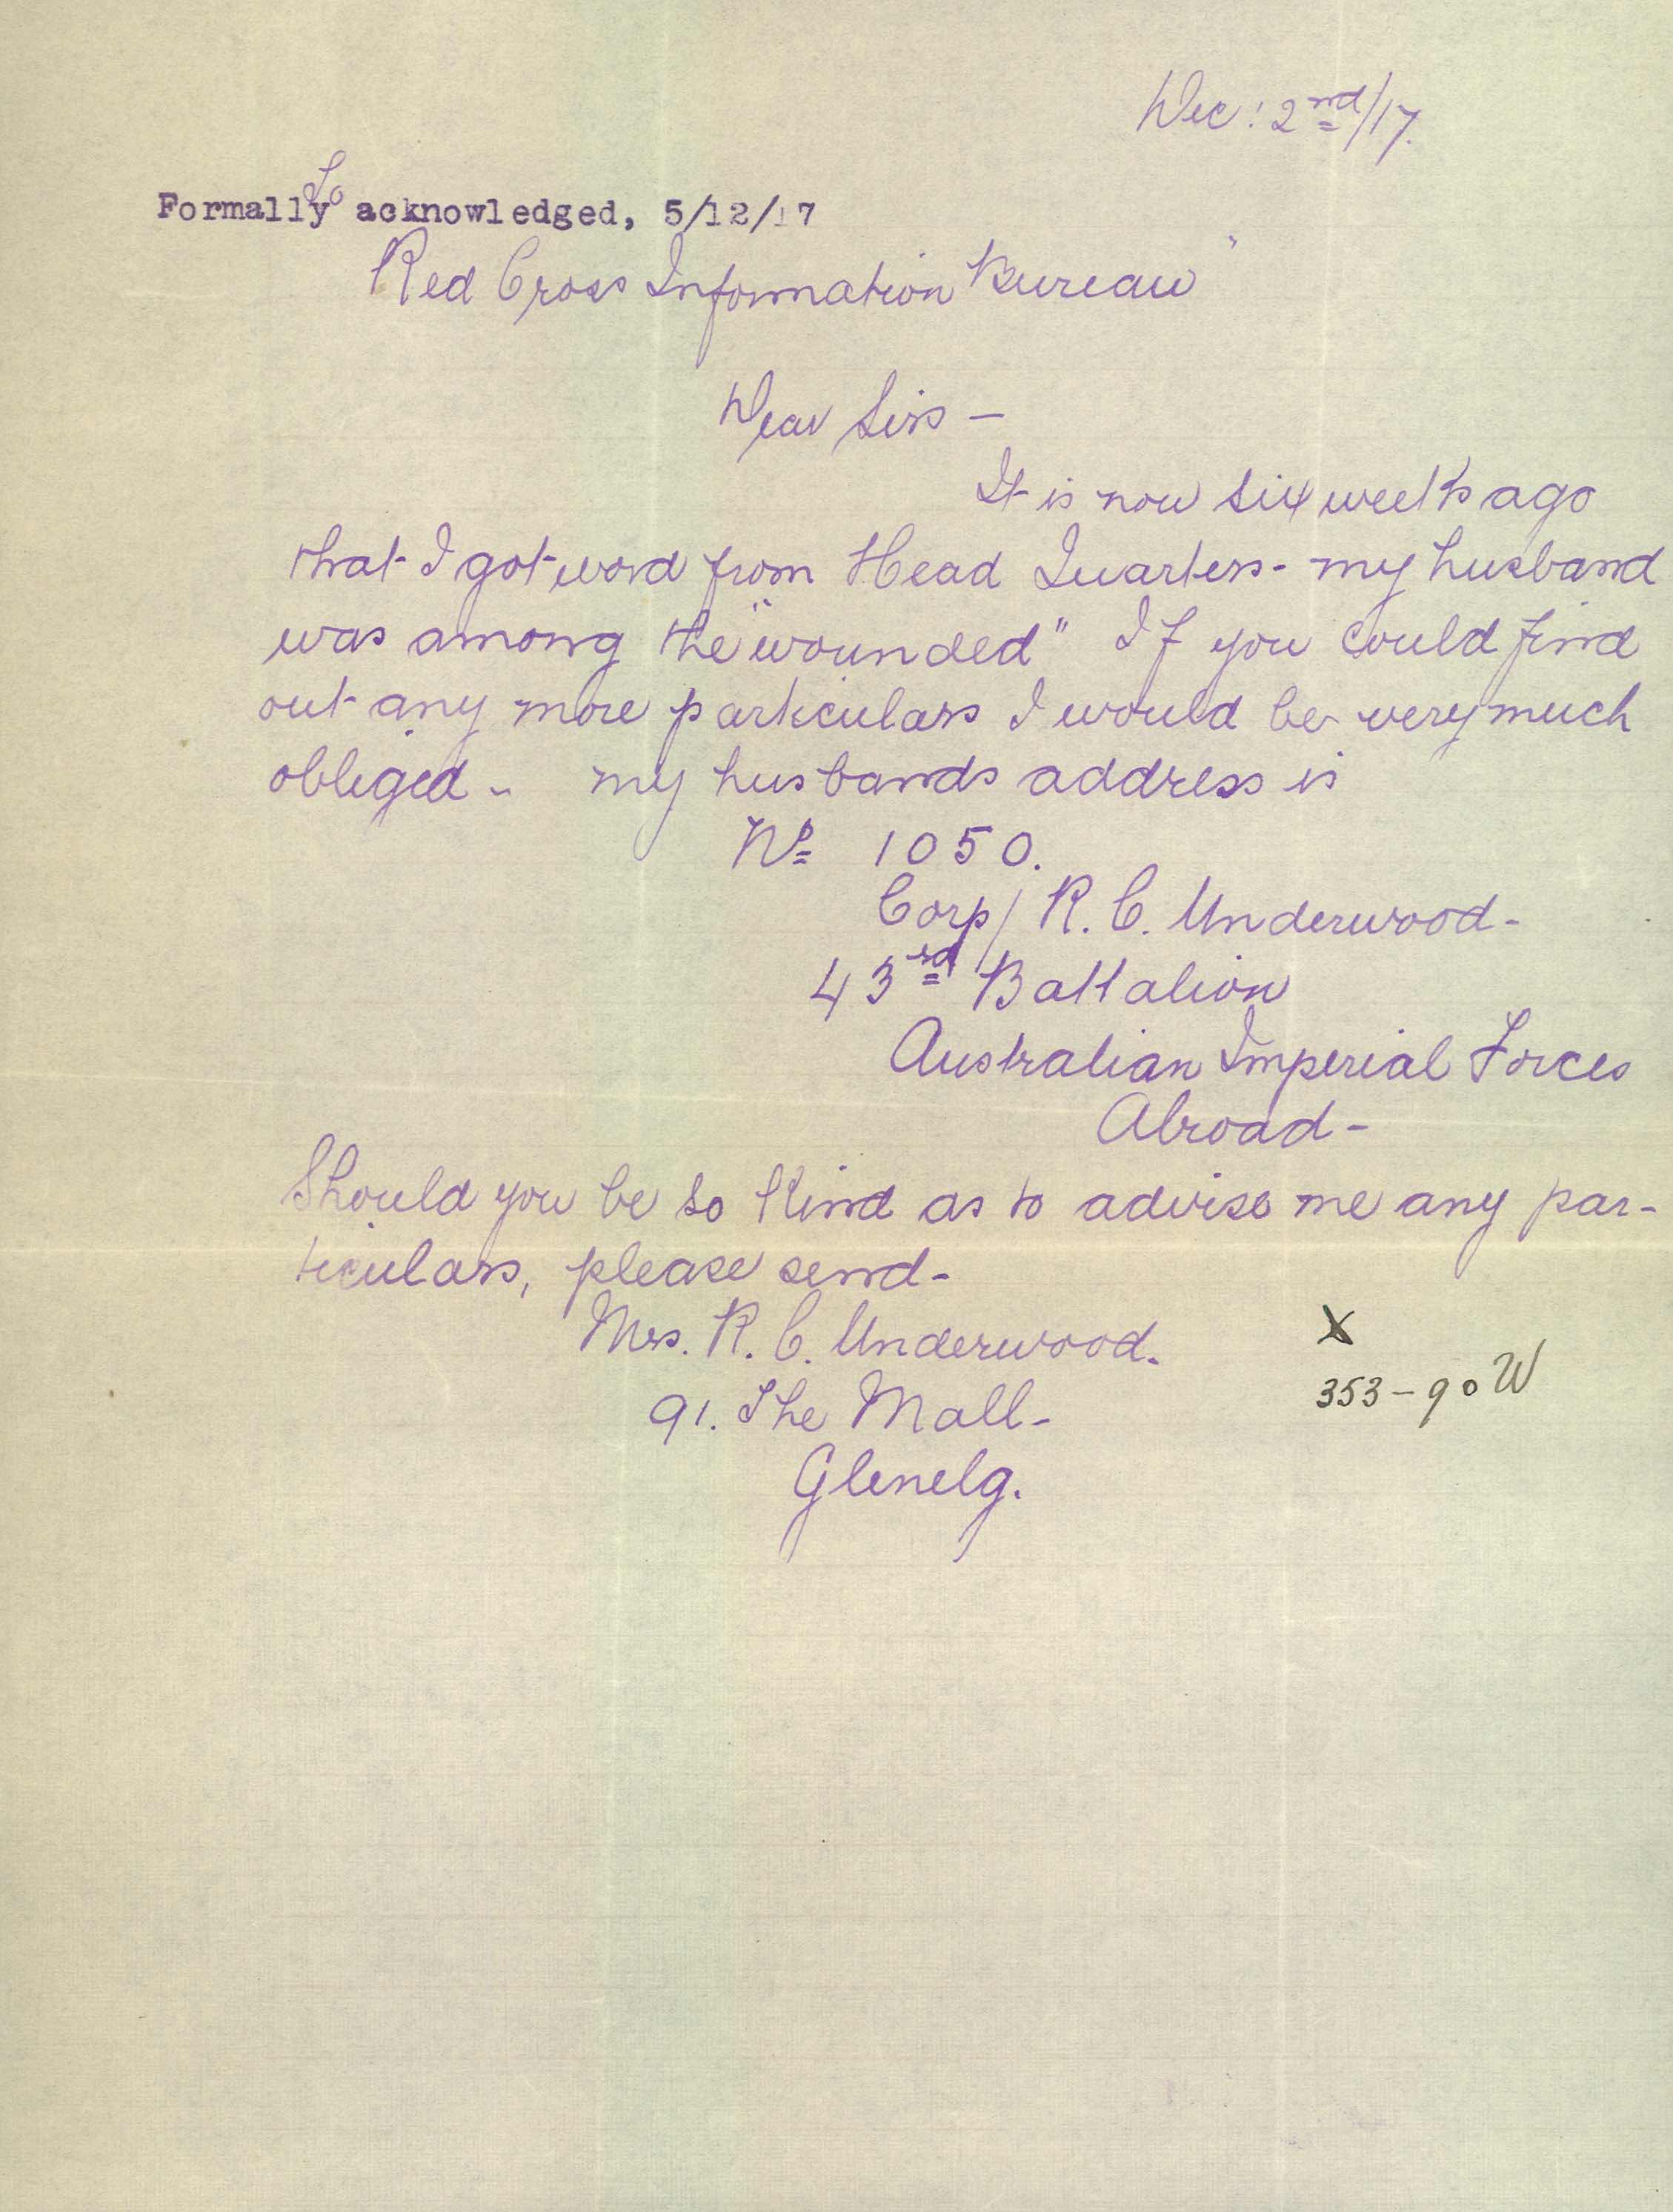 Dec: 2nd/17.
To
Formally acknowledged, 5/12/17
Red Cross Information Bureau"
Dear Sirs —
It is now six weeks ago
that I got word from Head Quarters - my husband
was among the "wounded" If you could find
out any more particulars I would be very much
obliged - my husbands address is
No 1050.
Corp/ R. C. Underwood -
43rd Battalion
Australian Imperial Forces
Abroad -
Should you be so kind as to advise me any par-
ticulars, please send -
Mrs. R. C. Underwood.
X
91. The Mall -
353 - 90 W
Glenelg.